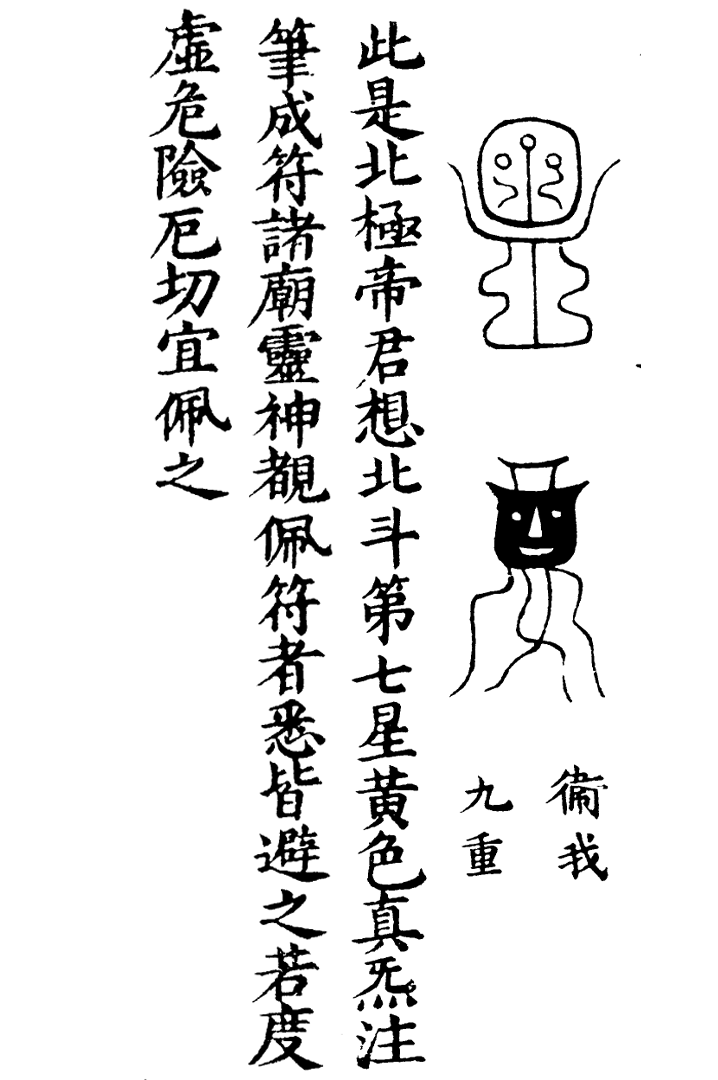 衞我
九重
此是北極帝君想北斗第七星黄色真炁注
筆成符諸廟靈神覩佩符者悉皆避之若度
虚危險厄切宜佩之